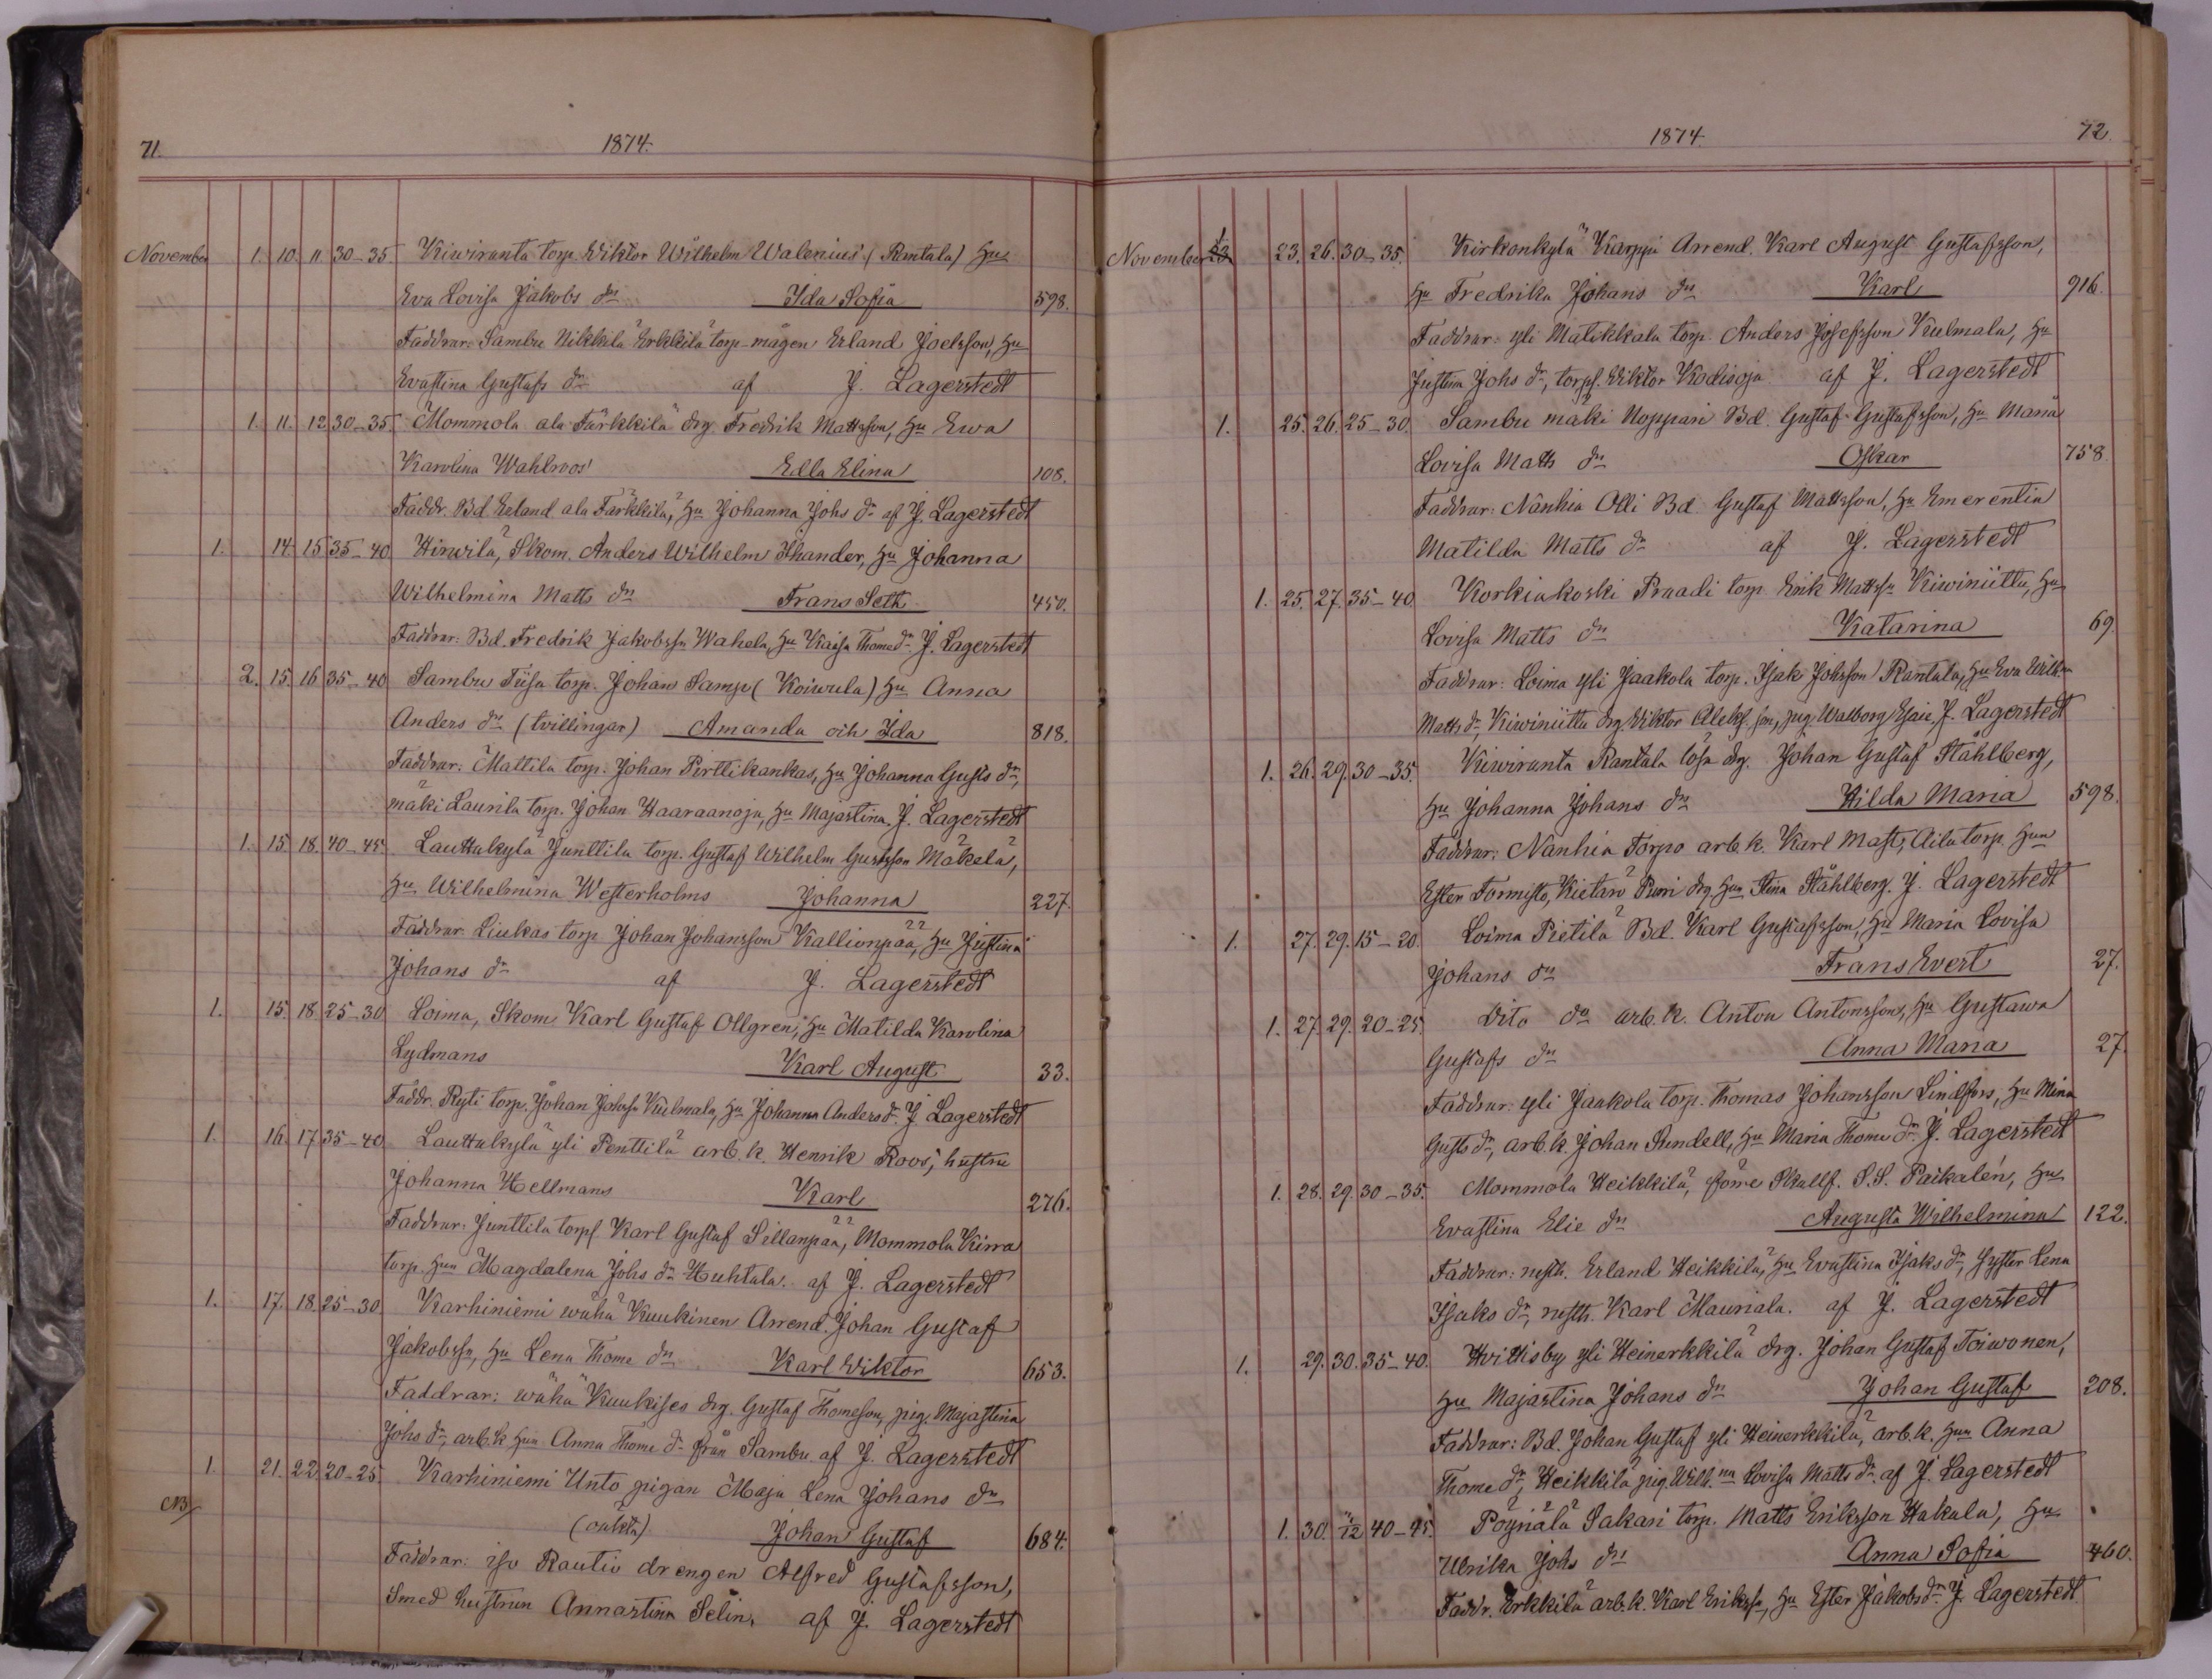 71.
1874.
November 1. 10. 11 30-35 Kiwiranta torp. Wiktor Wilhelm Walenius (Rantala) Hu
Eva Lovisa Jakobs dr Ida Sofia 598.
Faddrar: Sambu Nikkilä Erkkilä torp-mågen Erland Joelsson, Hu
Evastina Gustafs dr af J. Lagerstedt
1. 11. 12 30-35. Mommola ala Färkkilä drg. Fredrik Mattsson, Hu Ewa
Karolina Wahlroos Edla Elina 108.
Faddr. Bd. Erland ala Färkkilä, Hu Johanna Johs dr af J. Lagerstedt
1. 14. 15 35-40 Hirwilä, Skom. Anders Wilhelm Thander, Hu Johanna
Wilhelmina Matts dr Frans Seth 450.
Faddrar: Bd. Fredrik Jakobssn Wahela, Hu Kaisa Thome dr J. Lagerstedt
2. 15. 16 35-40 Sambu Tiisa torp. Johan Samp (Koiwula) Hu Anna
Anders dr (tvillingar) Amanda och Ida 818.
Faddrar. Mattila torp. Johan Pirttikankas, Hu Johanna Gusts dr,
mäki Laurila torp. Johan Haaraanoja, Hu Majastina. J. Lagerstedt
1. 15 18. 40-45 Lauttakylä Junttila torp. Gustaf Wilhelm Gustsson Mäkelä,
Hu Wilhelmina Westerholms Johanna 227.
Faddrar. Liukas torp Johan Johansson Kallionpää, Hu Justina
Johans dr af J. Lagerstedt
1. 15. 18. 25-30 Loima, Skom Karl Gustaf Ollgren, Hu Matilda Karolina
Lydmans Karl August 33.
Faddr. Ryti torp. Johan Johssn Kulmala, Hu Johanna Anders dr J. Lagerstedt
1. 16. 17 35-40 Lauttakylä yli Penttilä arb. k. Henrik Roos, hustru
Johanna Hellmans Karl 276.
Faddrar: Junttila torpf. Karl Gustaf Sillanpää, Mommola Kirra
torp. Hun Magdalena Johs dr Huhtala. af J. Lagerstedt
1. 17. 18 25-30 Karhiniemi wähä Kuukinen Arrend. Johan Gustaf
Jakobssn, Hu Lena Thome dr Karl Wiktor 653.
Faddrar: wähä Kuukises drg. Gustaf Thomeson, pig. Majastina
Johs dr, arb. k Hun Anna Thome dr från Sambu. af J. Lagerstedt
1. 21. 22. 20-25 Karhiniemi Unto pigan Maja Lena Johans dr
NB (oäkta) Johan Gustaf 684.
Faddrar: iso Rautio drengen Alfred Gustafsson,
Smed hustrun Annastina Selin, af J. Lagerstedt
1874.
72.
November 1 23. 26. 30-35. Kirkonkylä Karppi Arrend. Karl August Gustafsson,
Hu Fredrika Johans dr Karl 916.
Faddrar: yli Matikkala torp. Anders Josefsson Kulmala, Hu
Justina Johs dr, torpf. Wiktor Kodisoja af J. Lagerstedt
1. 25. 26. 25-30. Sambu mäki Noppari Bd. Gustaf Gustafsson, Hu Maria
Lovisa Matts dr Oskar 758.
Faddrar: Nanhia Olli Bd. Gustaf Mattsson, Hu Emerentia
Matilda Matts dr af J. Lagerstedt
1. 25. 27. 35-40. Korkiakoski Praadi torp Erik Mattssn Kiwiniittu, Hu
Lovisa Matts dr Katarina 69.
Faddrar: Loima yli Jaakola torp. Isak Johsson Rantala, Hu Eva Wilh
Matts dr, Kiwiniittu drg. Wiktor Aleks. son, pig. Walborg Esaie. J. Lagerstedt
1. 26. 29. 30-35. Kiwiranta Rantala lösa drg. Johan Gustaf Ståhlberg,
Hu Johanna Johans dr Hilda Maria 598.
Faddrar: Nanhia Torpo arb. k. Karl Matts, Aila torp. Hun
Ester Tormisto, Kietarö Purri drg Hun Stina Ståhlberg. J. Lagerstedt
1. 27. 29. 15-20. Loima Pietilä Bd. Karl Gustafsson, Hu Maria Lovisa
Johans dr Frans Evert 27.
1. 27. 29. 20-25. Dito do arb. k. Anton Antonsson, Hu Gustawa
Gustafs dr Anna Maria 27.
Faddrar: yli Jaakola torp. Thomas Johansson Lindfors, Hu Mina
Gusts dr, arb. k. Johan Sundell, Hu Maria Thome dr J. Lagerstedt
1. 28. 29. 30-35. Mommola Heikkilä, före Skallf. S. S. Paikalén, Hu
Evastina Elie dr Augusta Wilhelmina 122.
Faddrar: nysth. Erland Heikkilä, Hu Evastina Isaks dr, Syster Lena
Isaks dr, nysth. Karl Mauriala. af J. Lagerstedt
1. 29. 30. 35-40. Hvittisby yli Heinerkkilä drg. Johan Gustaf Toiwonen,
Hu Majastina Johans dr Johan Gustaf 208.
Faddrar: Bd. Johan Gustaf yli Heinerkkilä, arb. k. Hun Anna
Thome dr, Heikkilä pig. Wilh.na Lovisa Matts dr af J. Lagerstedt
1. 30. 1/12 40-45. Pöyriälä Sakari torp. Matts Eriksson Hakala, Hu
Ulrika Johs dr Anna Sofia 460.
Faddr. Erkkilä arb. k. Karl Erikssn, Hu Ester Jakobs dr J. Lagerstedt